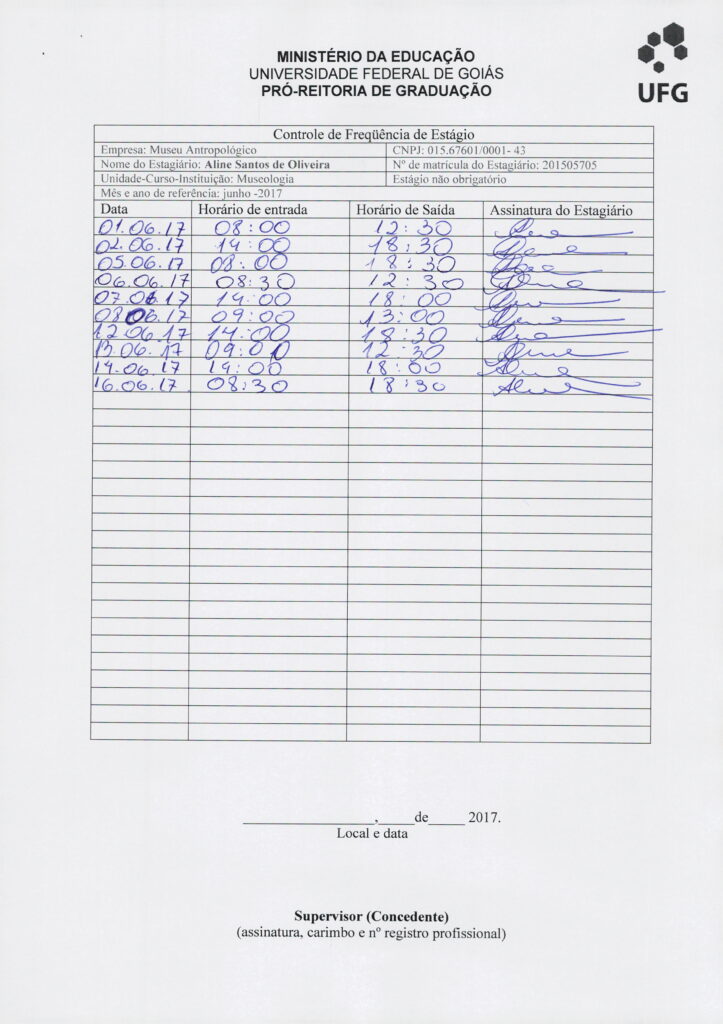 MINISTÉRIO DA EDUCAÇÃO
UNIVERSIDADE FEDERAL DE GOIÁS
PRÓ-REITORIA DE GRADUAÇÃO
UFG
Controle de Freqüência de Estágio
Empresa: Museu Antropológico CNPJ: 015.67601/0001- 43
Nome do Estagiário: Aline Santos de Oliveira Nº de matrícula do Estagiário: 201505705
Unidade-Curso-Instituição: Museologia Estágio não obrigatório
Mês e ano de referência: junho -2017
Data Horário de entrada Horário de Saída Assinatura do Estagiário
01.06.17 08:00 12:30 Aline
02.06.17 14:00 18:30 Aline
05.06.17 08:00 18:30 Aline
06.06.17 08:30 12:30 Aline
07.06.17 14:00 18:00 Aline
08.06.17 09:00 13:00 Aline
12.06.17 14:00 18:30 Aline
13.06.17 09:00 12:30 Aline
14.06.17 14:00 18:00 Aline
16.06.17 08:30 18:30 Aline
____________________,_____de_____ 2017.
Local e data
Supervisor (Concedente)
(assinatura, carimbo e nº registro profissional)